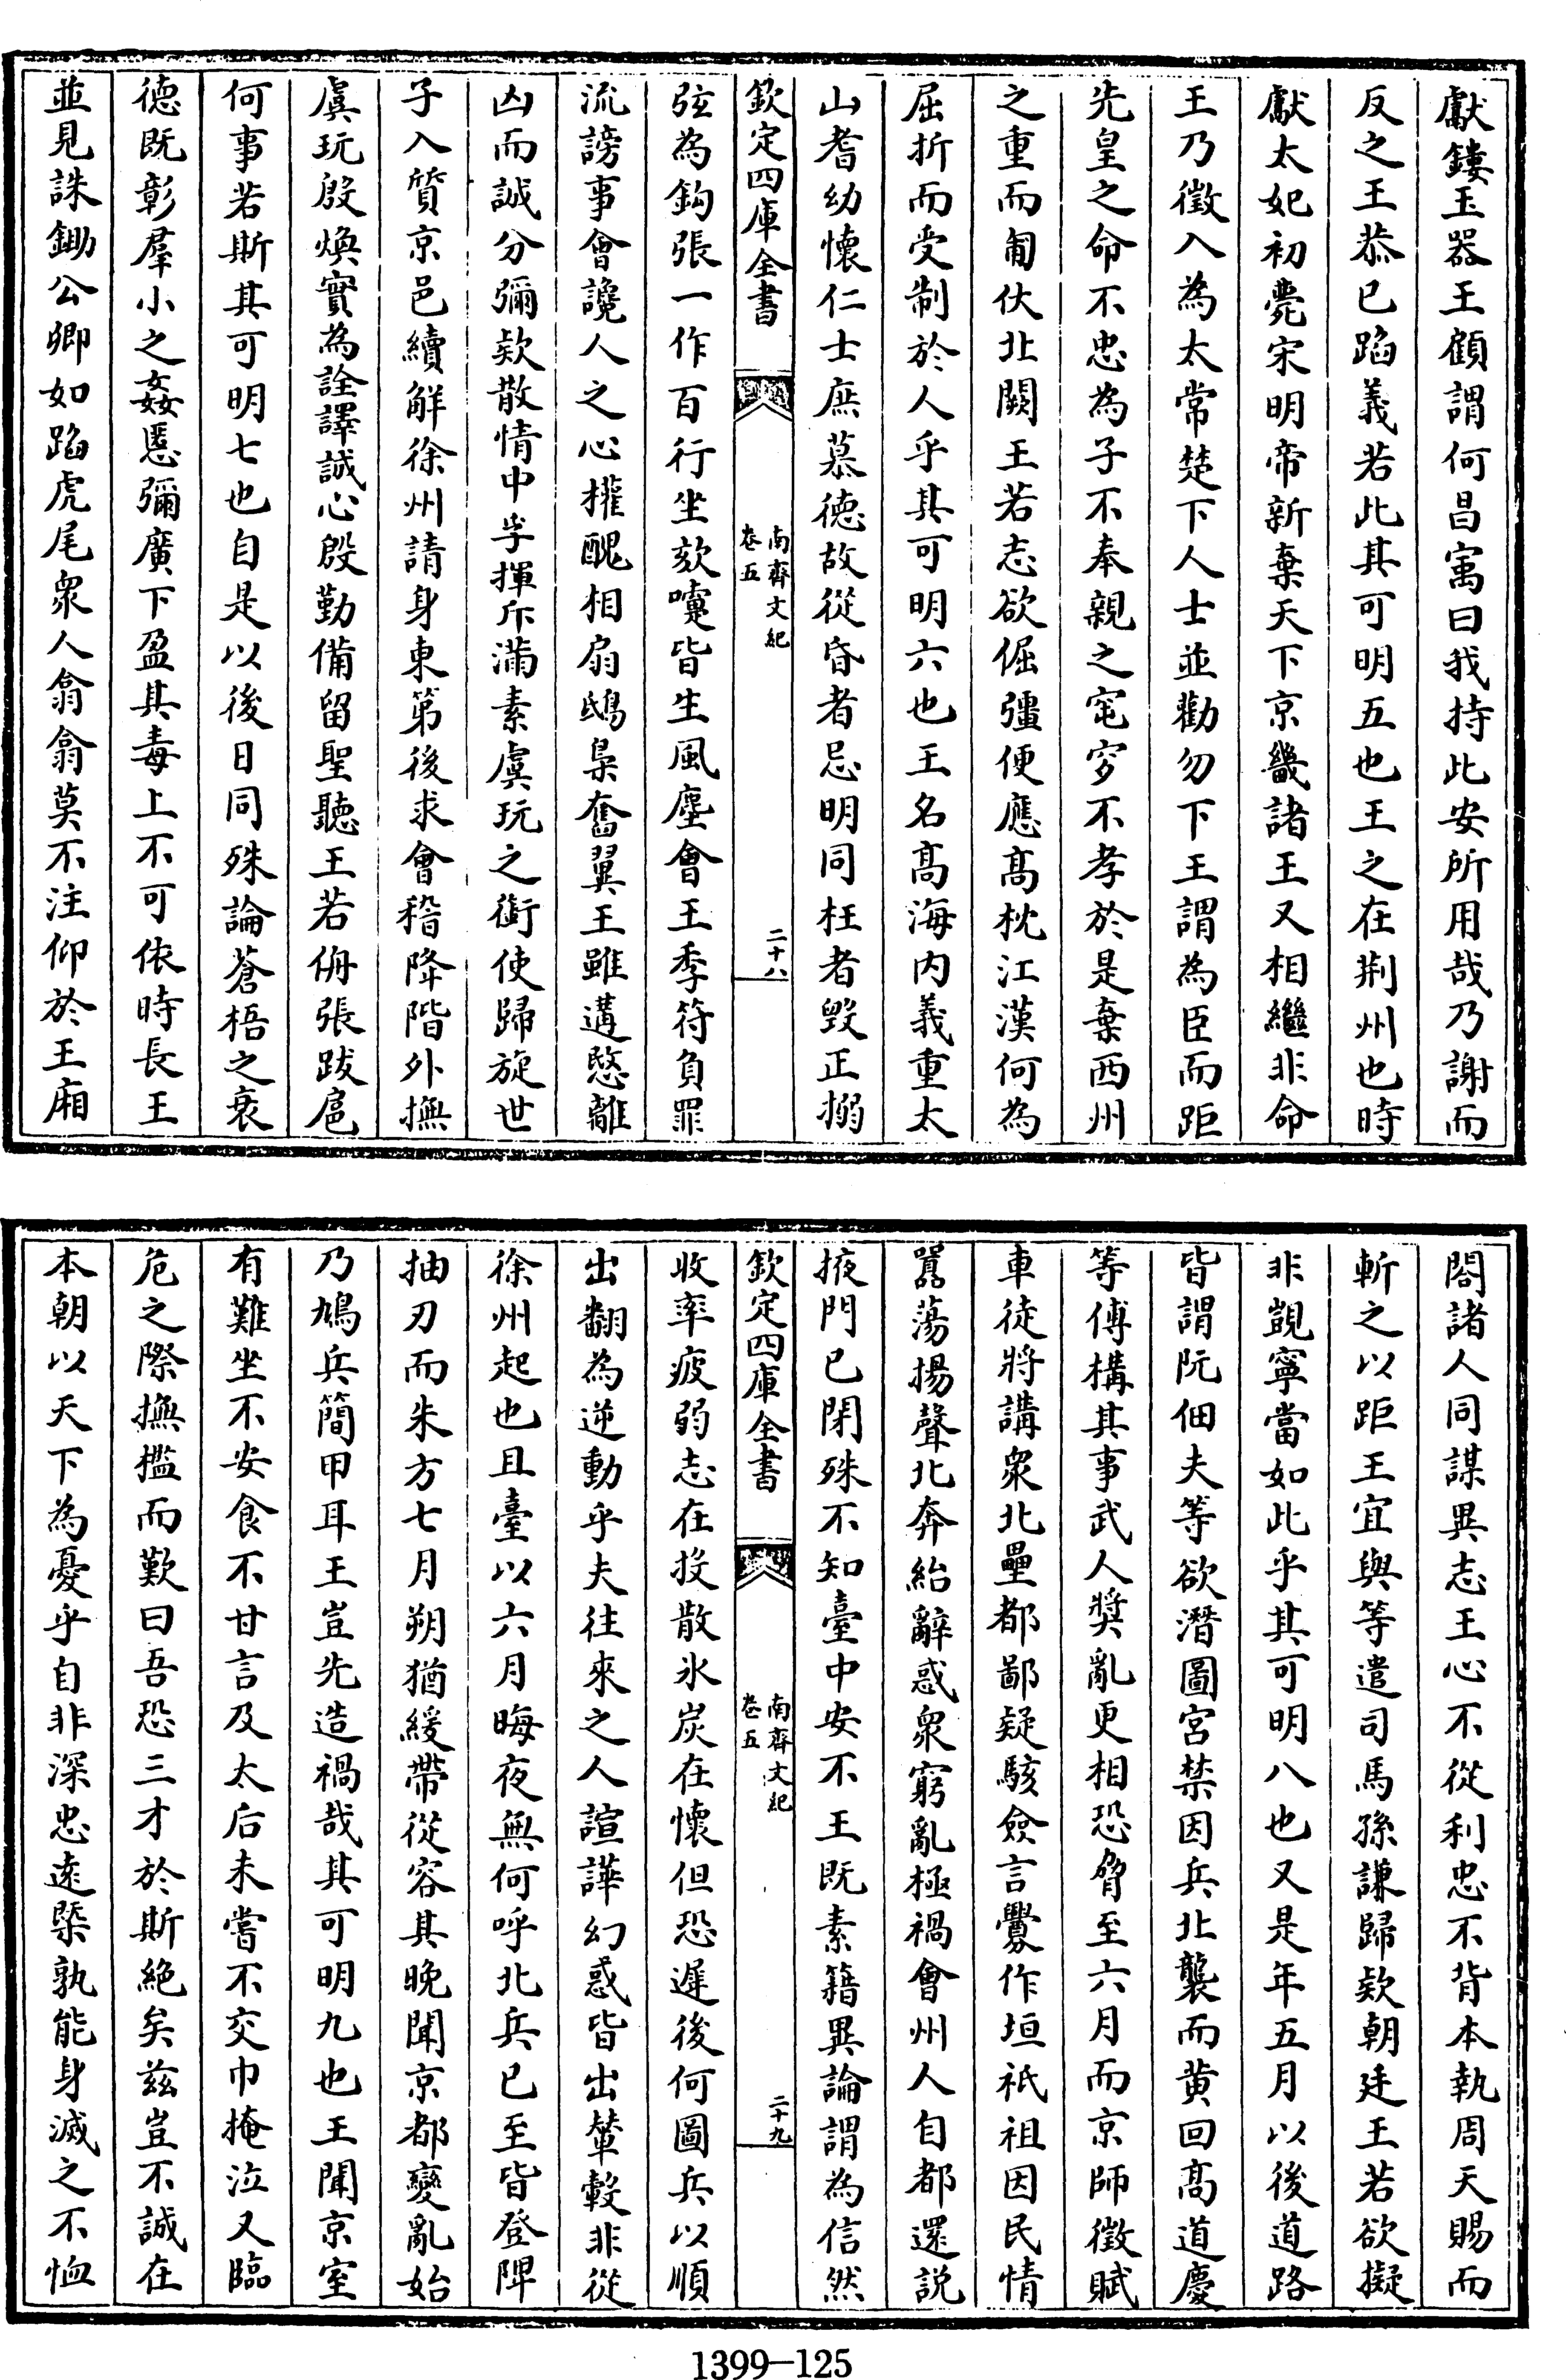 獻鏤玉器王顧謂何昌㝢曰我持此安所用哉乃謝而
反之王恭己蹈義若此其可明五也王之在荆州也時
獻太妃初薨宋明帝新棄天下京畿諸王又相繼非命
王乃徵入為太常楚下人士並勸勿下王謂為臣而距
先皇之命不忠為子不奉親之窀穸不孝於是棄西州
之重而匍伏北闕王若志欲倔彊便應髙枕江漢何為
屈折而受制於人乎其可明六也王名髙海内義重太
山耆幼懷仁士庶慕德故從昏者忌明同枉者毁正搦
欽定四庫全書
南齊文紀
卷五
二十八
弦為鈎張一作百行坐欬嚏皆生風塵會王季符負罪
流謗事會讒人之心權醜相扇鴟梟奮翼王雖遘愍離
凶而誠分彌欵散情中孚揮斥滿素虞玩之銜使歸旋世
子入質京邑續解徐州請身東第後求會稽降階外撫
虞玩殷煥實為詮譯誠心殷勤備留聖聽王若侜張跋扈
何事若斯其可明七也自是以後日同殊論蒼梧之衰
德既彰羣小之姦慝彌廣下盈其毒上不可依時長王
並見誅鋤公卿如蹈虎尾衆人翕翕莫不注仰於王廂
閤諸人同謀異志王心不從利忠不背本執周天賜而
斬之以距王宜與等遣司馬孫謙歸欵朝廷王若欲擬
非覬寧當如此乎其可明八也又是年五月以後道路
皆謂阮佃夫等欲潛圖宮禁因兵北襲而黄回髙道慶
等傅構其事武人奬亂更相恐脅至六月而京師徵賦
車徒將講衆北壘都鄙疑駭僉言釁作垣祇祖因民情
囂蕩揚聲北奔紿辭惑衆窮亂極禍會州人自都還説
掖門已閉殊不知臺中安不王既素籍異論謂為信然
欽定四庫全書
南齊文紀
卷五
二十九
收率疲弱志在投散氷炭在懷但恐遲後何圖兵以順
出翻為逆動乎夫往來之人諠譁幻惑皆出輦轂非從
徐州起也且臺以六月晦夜無何呼北兵已至皆登陴
抽刃而朱方七月朔猶緩帶從容其晚聞京都變亂始
乃鳩兵簡甲耳王豈先造禍哉其可明九也王聞京室
有難坐不安食不甘言及太后未嘗不交巾掩泣又臨
危之際撫檻而歎曰吾恐三才於斯絶矣兹豈不誠在
本朝以天下為憂乎自非深忠遠槩孰能身滅之不恤
1399—125